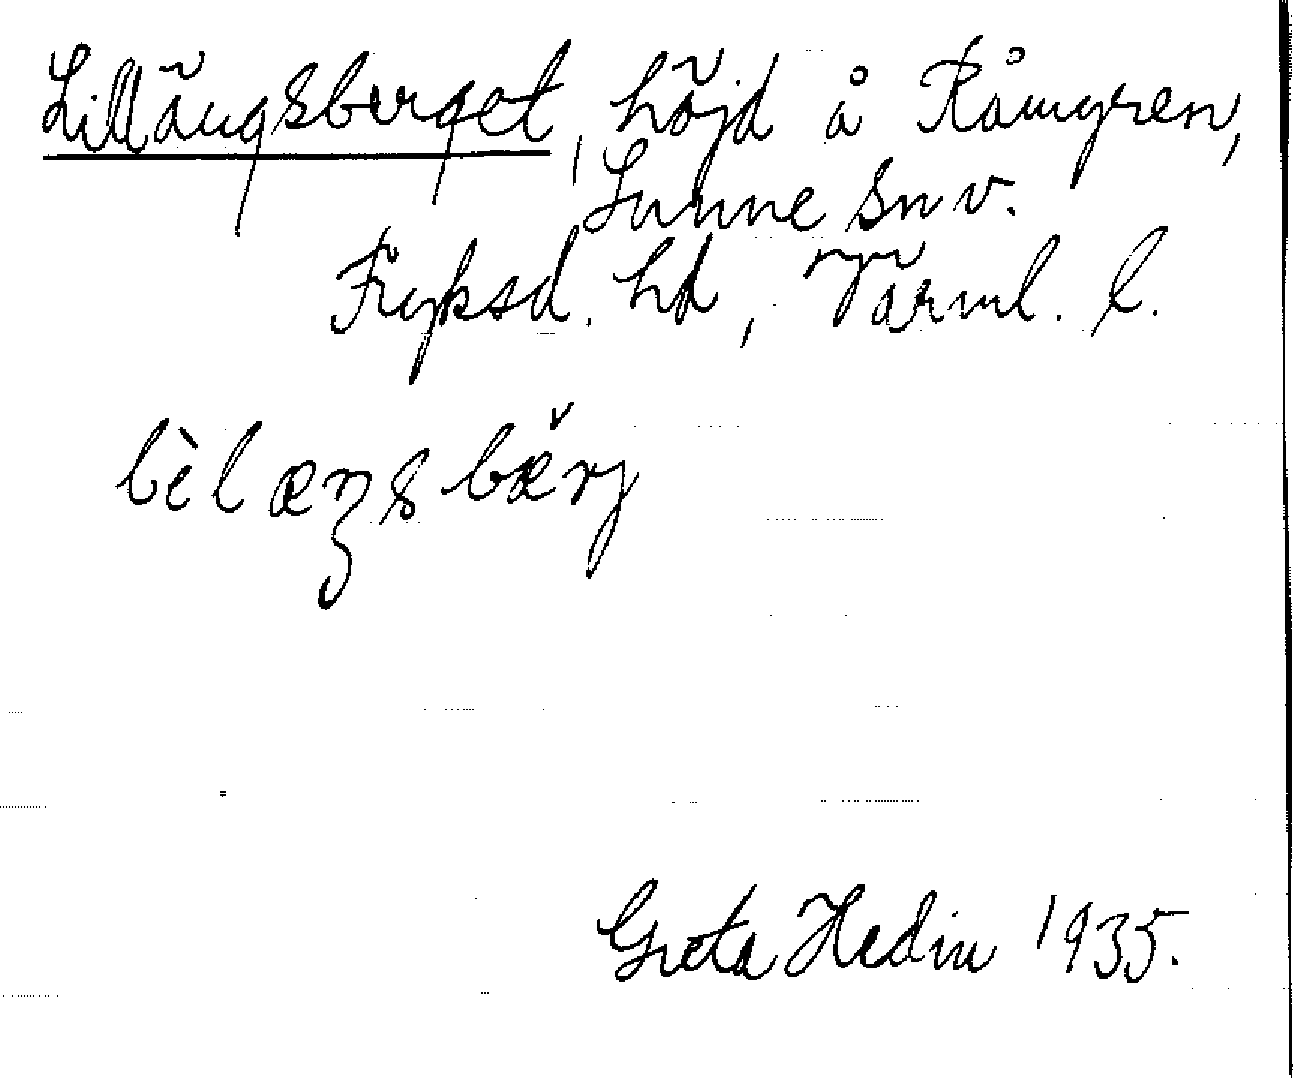 Lillängsberget, höjd å Råmgren,
Sunne sn v.
Fryksd. hd, Värml. l.
lèlæŋsbæ̌rj
Greta Hedin 1935.